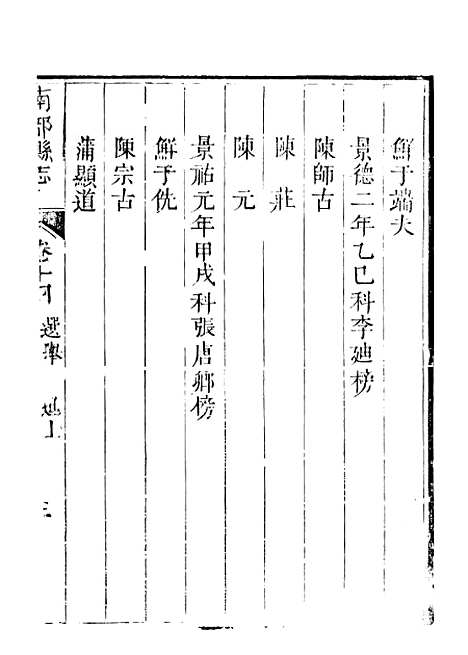 鮮于端夫
景德二年乙巳科李廸榜
陳師古
陳莊
陳元
景祐元年甲戌科張唐卿榜
鮮于侁
陳宗古
蒲顯道
南部縣志
卷十四 選舉
三